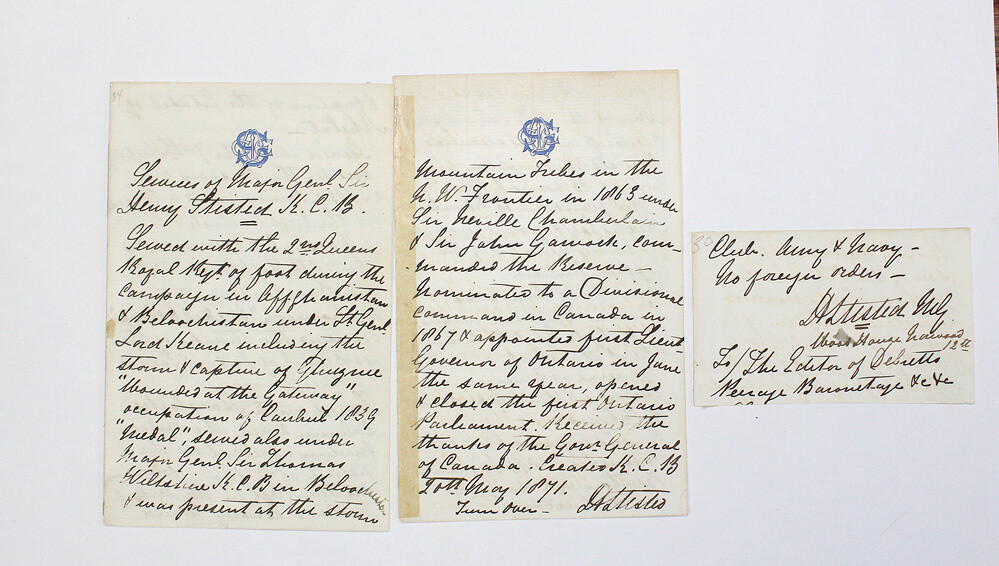 34
Services of Major Genl. Sir
Henry Stisted K.C.B.
Served with the 2nd Queens
Royal Regt. of foot during the
Campaign in Affghanistan
& Beloochistan under Lt. Genl.
Lord Keane including the
storm & capture of Ghuznee
"Wounded at the Gateway"
occupation of Caubul 1839
"Medal", served also under
Major Genl. Sir Thomas
Wiltshire K.C.B in Beloochistan
& was present at the storm
Mountain Tribes in the
N.W. Frontier in 1863 under
Sir Neville Chamberlain
& Sir John Garvock, com-
manded the Reserve –
Nominated to a Divisional
command in Canada in
1867 & appointed first Lieut
Governor of Ontario in June
the same year, opened
& closed the first Ontario
Parliament. Received the
thanks of the Govr. General
of Canada. Created K.C.B
20th May 1871.
Turn over – HStisted
Club. Army & Navy –
No foreign orders –
HStisted MG
Wood House Norwood
12th
To/ The Editor of Debretts
Peerage Baronetage &c &c